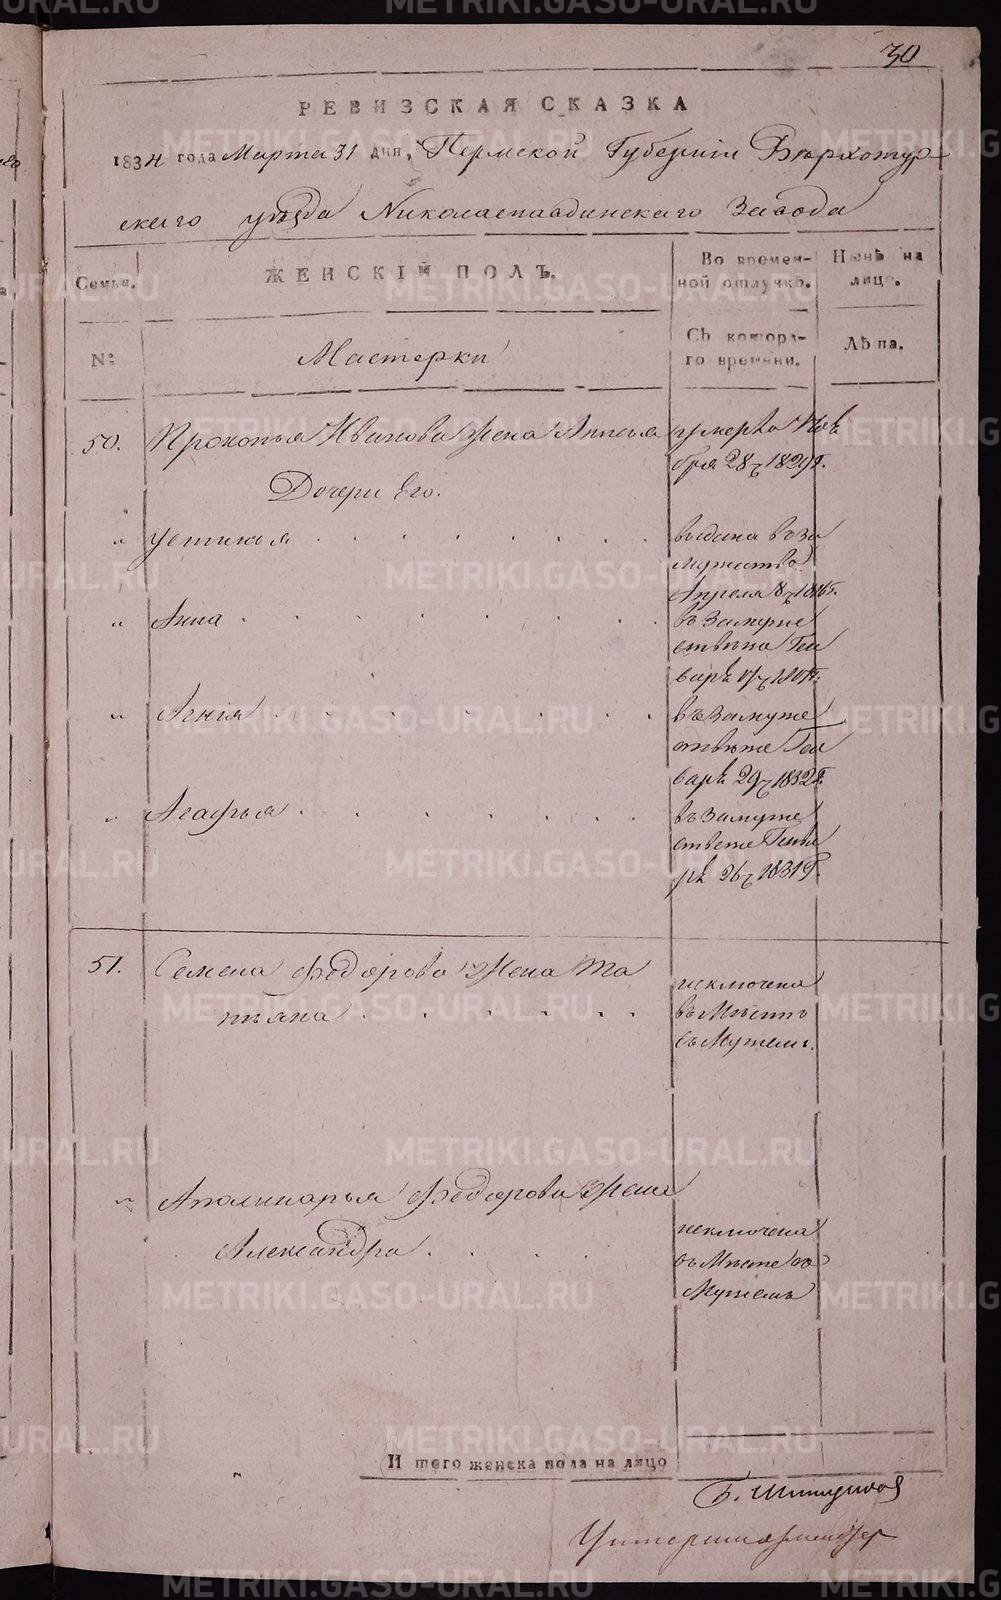 30
РЕВИЗСКАЯ СКАЗКА
1834 года Марта 31 дня, Пермской Губернiи Верхотур-
скаго уѣзда Николаепавдинскаго Завода
Семьи.
ЖЕНСКIЙ ПОЛЪ.
Во времен-
ной отлучкѣ.
Нынѣ на
лицо.
№
Мастерки
Съ котора-
го времени.
Лѣта.
50. Прокопья Иванова жена Анисья
умерла Ноя
бря 28 1829 г.
Дочери Его.
" Устинья
выдана в за
мужство
Апреля 8
" Анна
въ Замуже
ства Ген
варя
" Агнiя
въ Замуже
стве Ген
варя 29 1832 г.
" Агафья
въ Замуже
стве Генва
ря 26 1831 г.
51. Семена Федорова Жена Та
тьяна
исключена
въ Месте
съ Мужемъ.
" Аполинарья Федорова Жена
Александра
исключена
въ Месте съ
Мужемъ
И того женска пола на лицо
METRIKI.GASO-URAL.RU